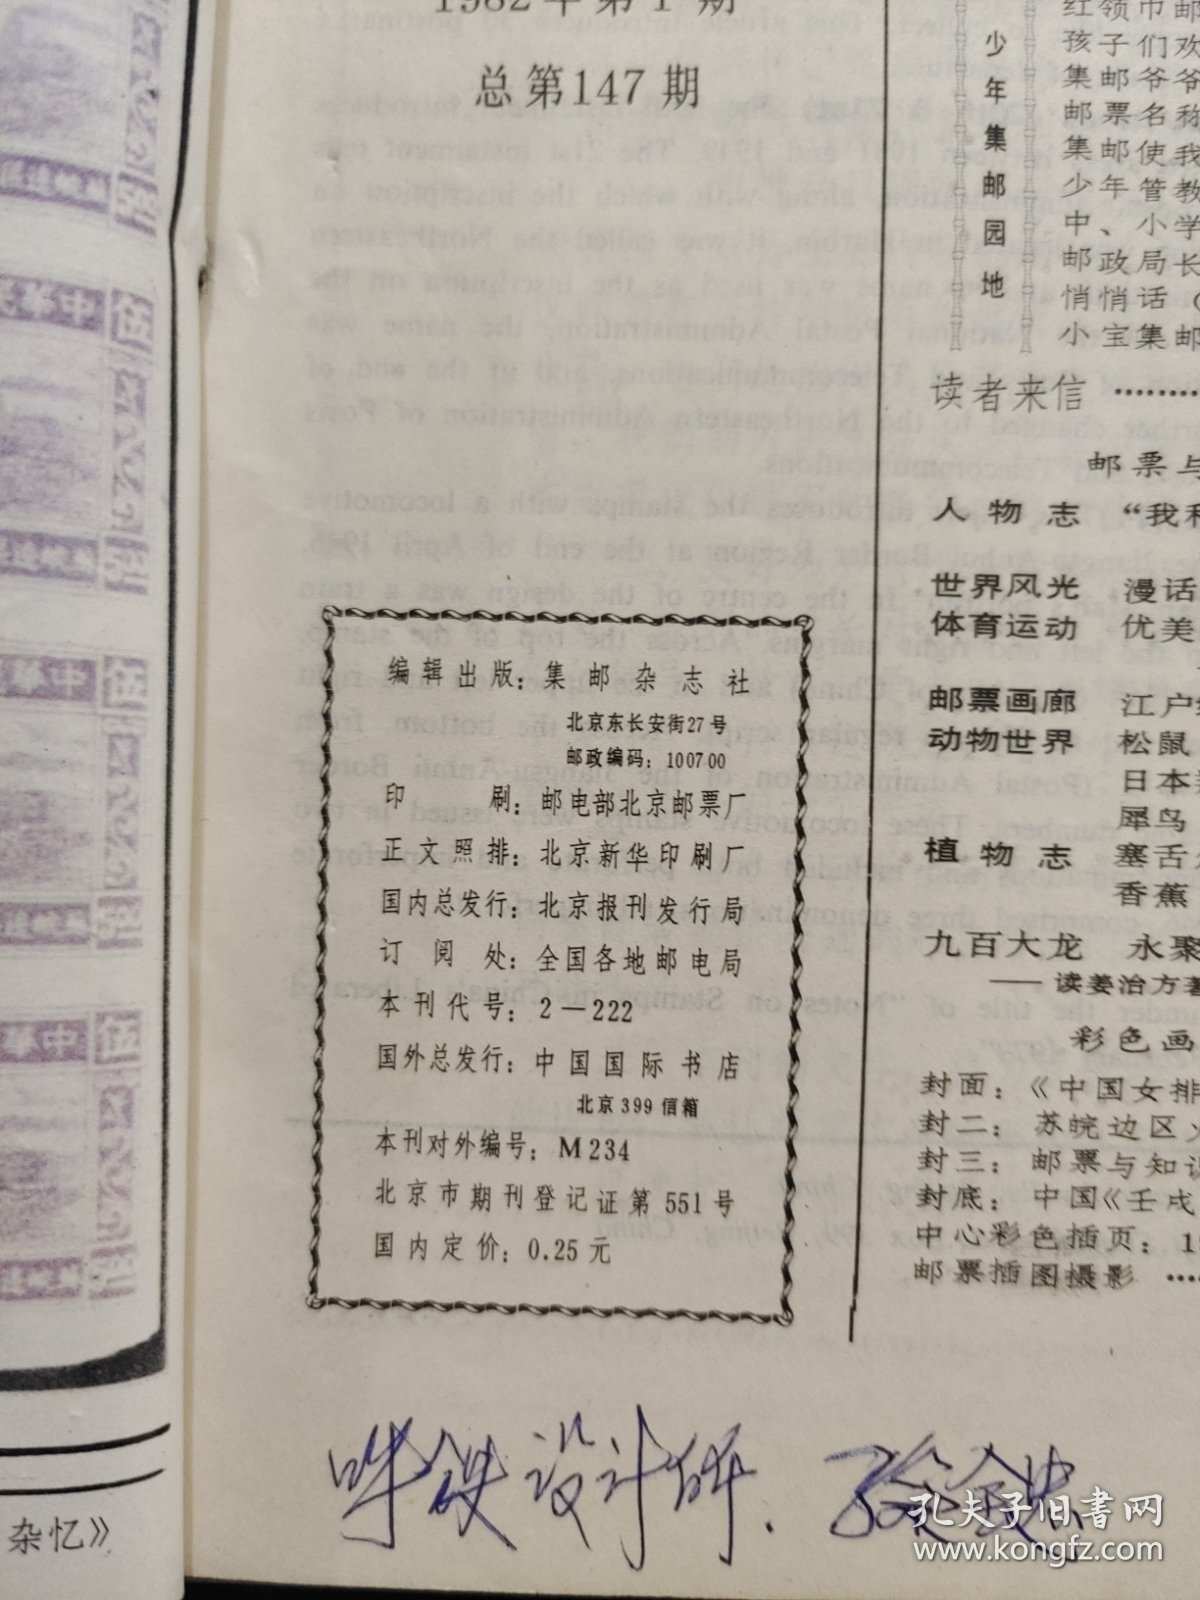 1982年第1期
总第147期
编辑出版：集邮杂志社
北京东长安街27号
邮政编码：100700
印刷：邮电部北京邮票厂
正文照排：北京新华印刷厂
国内总发行：北京报刊发行局
订阅处：全国各地邮电局
本刊代号：2—222
国外总发行：中国国际书店
北京399信箱
本刊对外编号：M234
北京市期刊登记证第551号
国内定价：0.25元
少年集邮园地
红领巾邮
孩子们欢
集邮爷爷
邮票名称
集邮使我
少年管教
中、小学
邮政局长
悄悄话（
小宝集邮
读者来信 ………
邮票与
人物志 “我和
世界风光 漫话
体育运动 优美
邮票画廊 江户
动物世界 松鼠
日本
犀鸟
植物志 塞舌
香蕉
九百大龙 永聚
——读姜治方著
彩色画
封面：《中国女排
封二：苏皖边区
封三：邮票与知识
封底：中国《壬戌
中心彩色插页：1
邮票插图摄影 ……
杂忆》
设计
孔夫子旧书网
www.kongfz.com